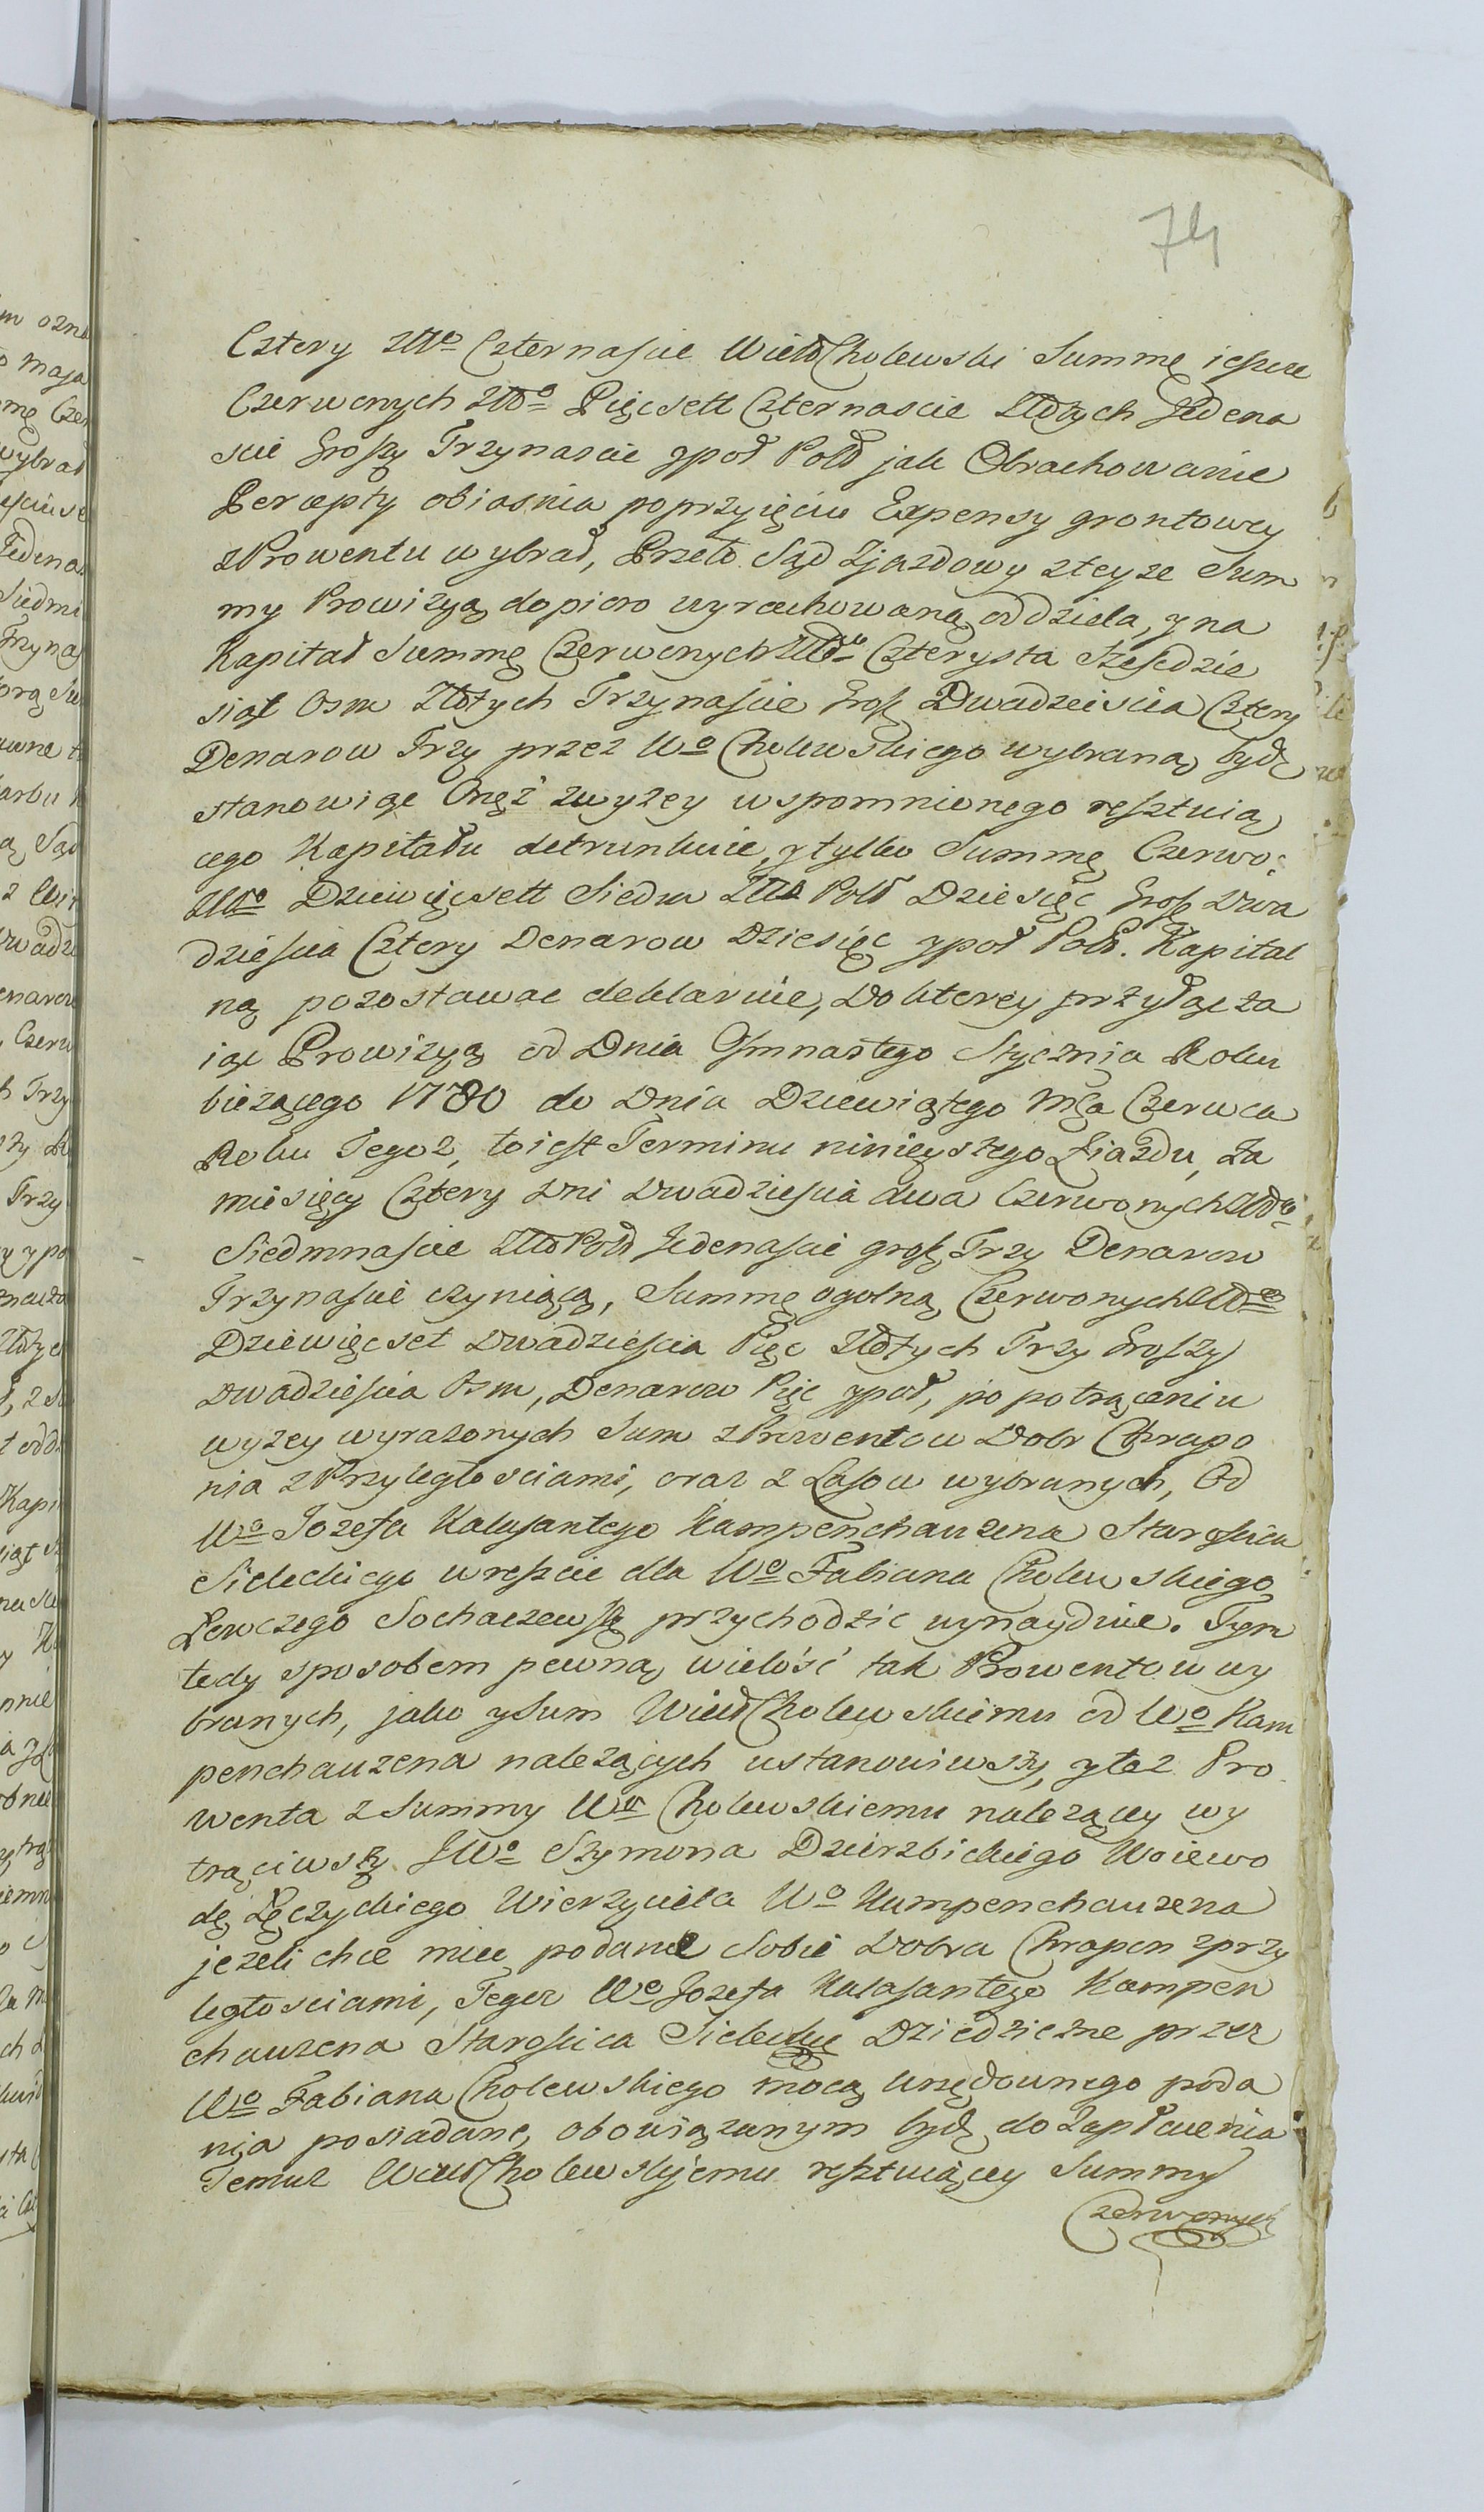 74
Cztery Złło Czternascie Wielł Cholewski Summę ieszcze
Czerwonych Złło Pięcsett Czternascie Złłtych Jedena
scie Groszy Trzynascie ypoł Poll jak Obrachowanie
Percepty obiasnia poprzyięciu Expensy grontowey
zProwentu wybrał, Przeto Sąd Zjazdowy zteyze Sum
my Prowizyą dopiero wyrachowaną oddziela, y na
Kapitał Summę Czerwonych Złłch Czterysta Szescdzie
siąt Osm Złotych Trzynascie Grosz Dwadziescia Cztery
Denarow Trzy przez Wo Cholewskiego wybraną bydz
stanowiąc Onęz zwyzey wspomnionego resztuią
cego Kapitału detrunkuie, y tylko Summę Czerwo:
Złło Dziewięcsett Siedm Złł Poll Dziesięc Grosz Dwa
dziescia Cztery Denarow Dziesięc ypoł Poll. Kapital
ną pozostawac deklaruie, Doktorey przyłącza
iąc Prowizyą od Dnia Osmnastego Stycznia Roku
biezącego 1780 do Dnia Dziewiątego Mca Czerwca
Roku Tegoz, toiest Terminu ninieyszego Ziazdu, Za
miesięcy Cztery Dni Dwadziescia dwa Czerwonych Złło
Siedmnascie Złł Poll Jedenascie grosz Trzy Denarow
Trzynascie czyniącą, Summę ogolną Czerwonych Złło
Dziewięcset Dwadziescia Pięc Złotych Trzy Groszy
Dwadziescia Osm, Denarow Pięc ypoł, po potrąceniu
wyzey wyrazonych Sum zProwentow Dobr Chrapo
nia zPrzyległosciami, oraz z Lasow wybranych, Od
Wo Jozefa Kalasantego Kampenchauzena Starosica
Sieleckiego wreszcie dla Wo Fabiana Cholewskiego
Łowczego Sochaczewsk przychodzic wynayduie. Tym
tedy sposobem pewną wielość tak Prowentow wy
branych, jako ySum Wiell Cholewskiemu od Wo Kam
penchauzena nalezących ustanowiwszy, ytez Pro
wenta z Summy Wu Cholewskiemu nalezącey wy
trąciwszy JWo Szymona Dzierzbickiego Woiewo
dę Łęczyckiego Wierzyciela Wo Kampenchauzena
jezeli chce miec podane Sobie Dobra Chrapon zprzy
ległosciami, Tegoz Wo Jozefa Kalasantego Kampen
chauzena Starosica Sieleckie Dziedziczne przez
Wo Fabiana Cholewskiego mocą Urzędownego poda
nia posiadane, obowiązanym bydz do Zapłacenia
Temuz Wiell Cholewskiemu resztuiącey Summy
Czerwonych